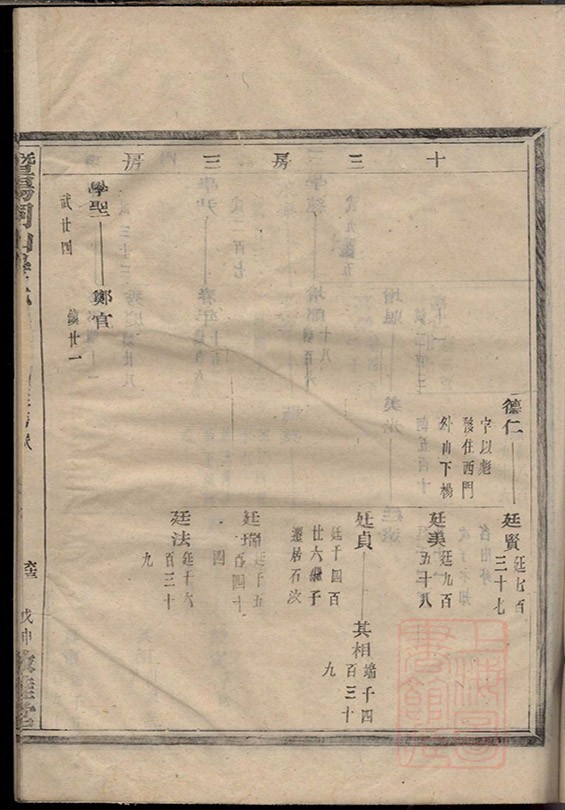 十三房三房
德仁
字以彪
發住西門
外山下楊
廷賢
廷七百
三十七
廷美
廷九百
五十八
廷貞
廷千四百
廿六繼子
遷居石汝
其相
端千四
百三十
九
廷瑞
廷千五
百四十
四
廷法
廷千六
百三十
九
學聖
武廿四
鄭官
鎮廿一
戊申